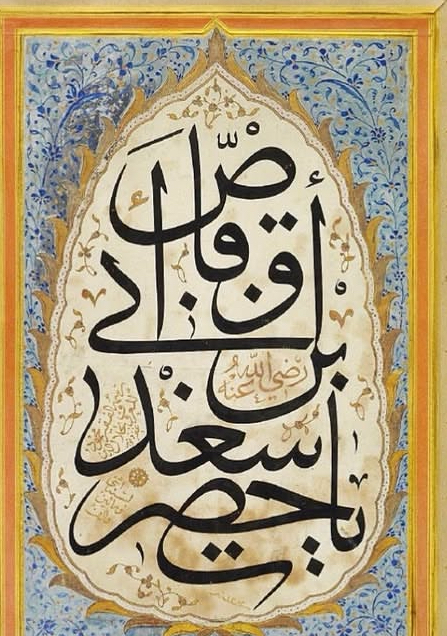 يا حضرت
سعد
بن أبي
وقاص
رضي الله
عنه